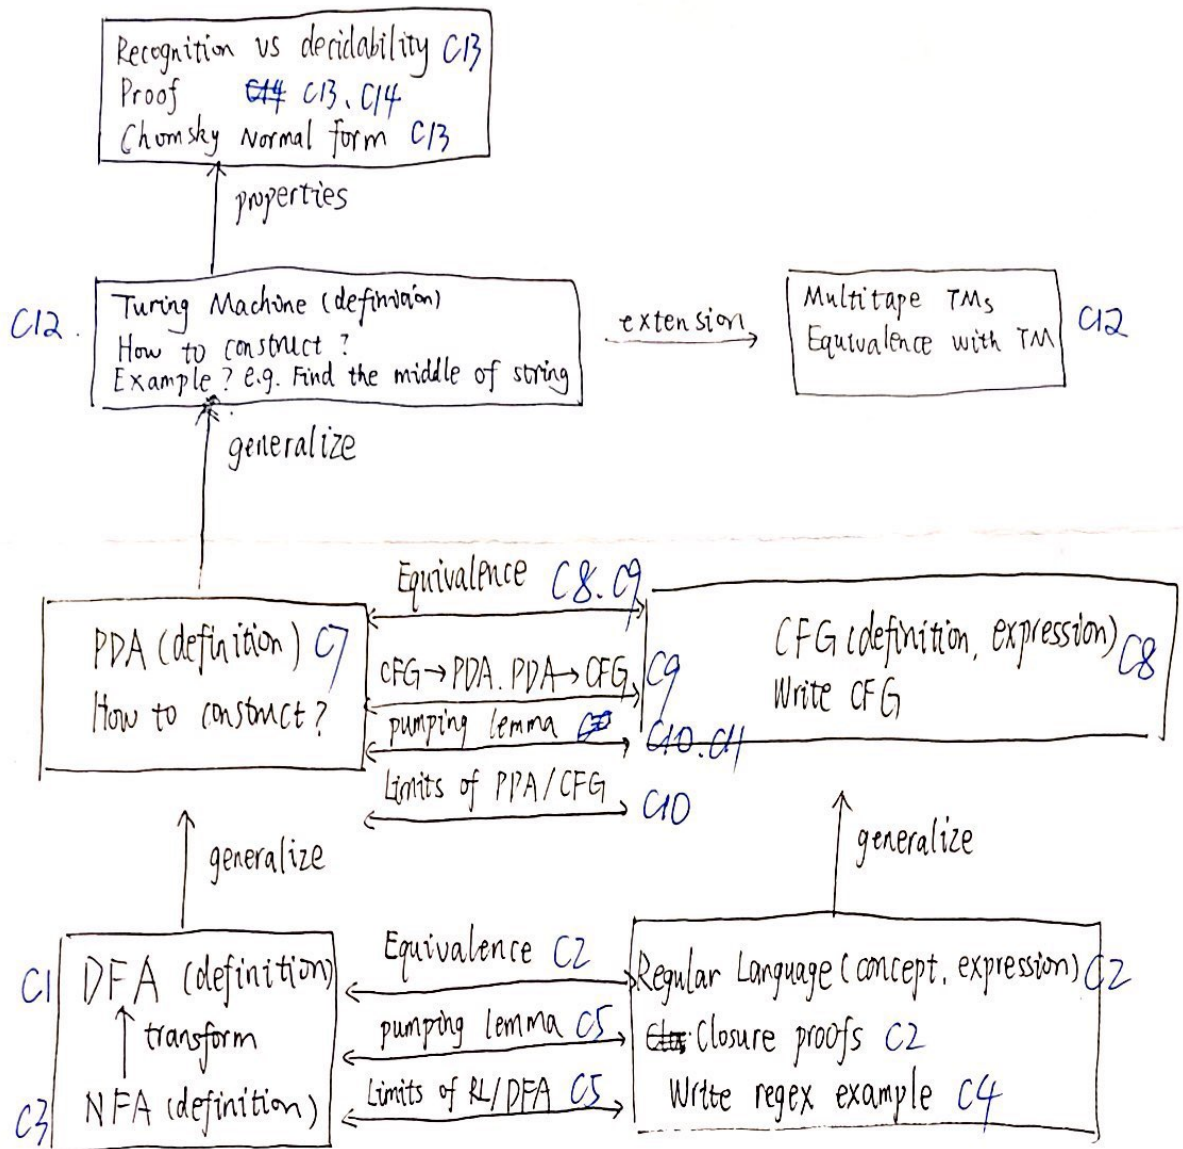 Recognition vs decidability C13
Proof C14 C13、C14
Chomsky Normal form C13
properties
C12.
Turing Machine (definition)
How to construct ?
Example ? e.g. Find the middle of string
extension
Multitape TMs
Equivalence with TM
C12
generalize
Equivalence C8. C9
PDA (definition) C7
How to construct ?
CFG → PDA. PDA → CFG C9
pumping lemma C10. C11
Limits of PDA/CFG C10
CFG (definition, expression) C8
Write CFG
generalize
generalize
C1 DFA (definition)
transform
C3 NFA (definition)
Equivalence C2
pumping lemma C5
Limits of RL/DFA C5
Regular Language (concept, expression) C2
Closure proofs C2
Write regex example C4